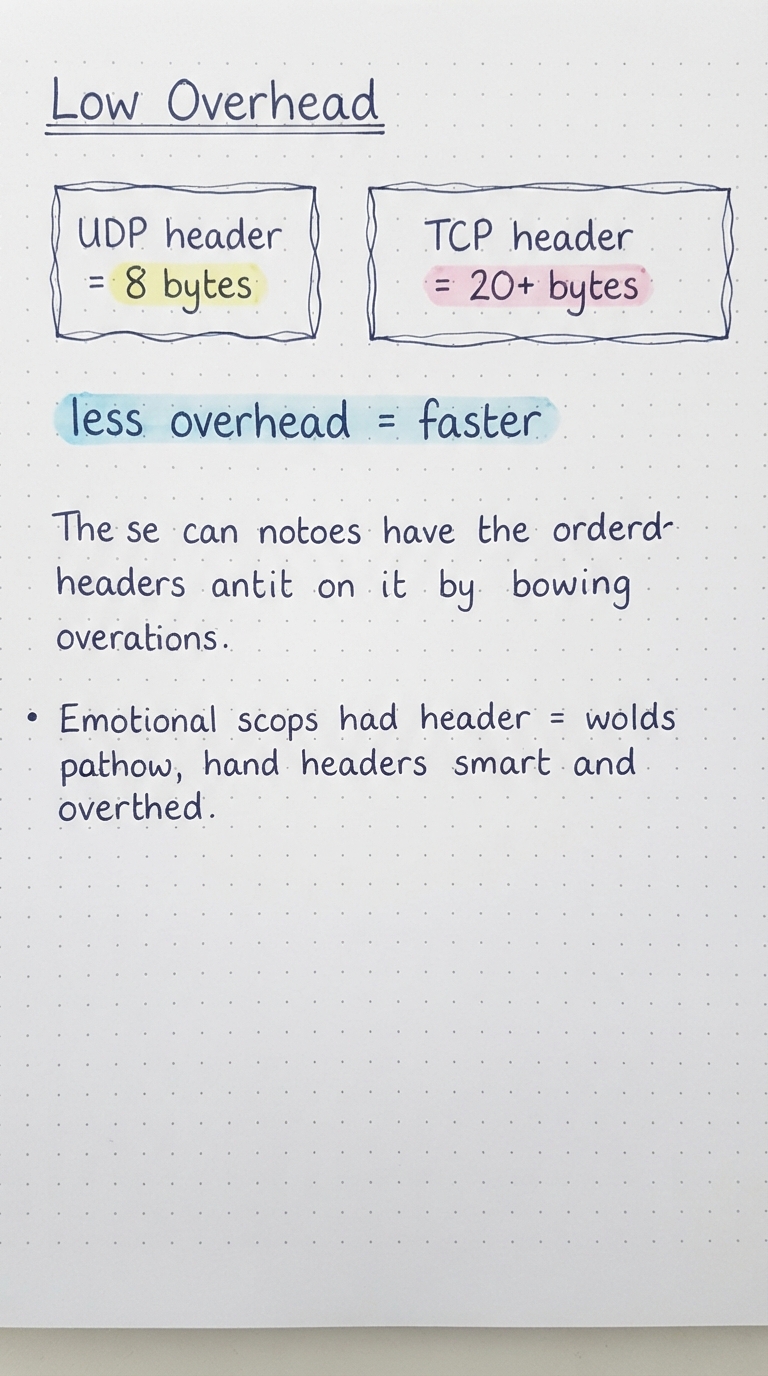 Low Overhead
UDP header
= 8 bytes
TCP header
= 20+ bytes
less overhead = faster
The se can notoes have the orderd-
headers antit on it by bowing
overations.
• Emotional scops had header = wolds
pathow, hand headers smart and
overthed.